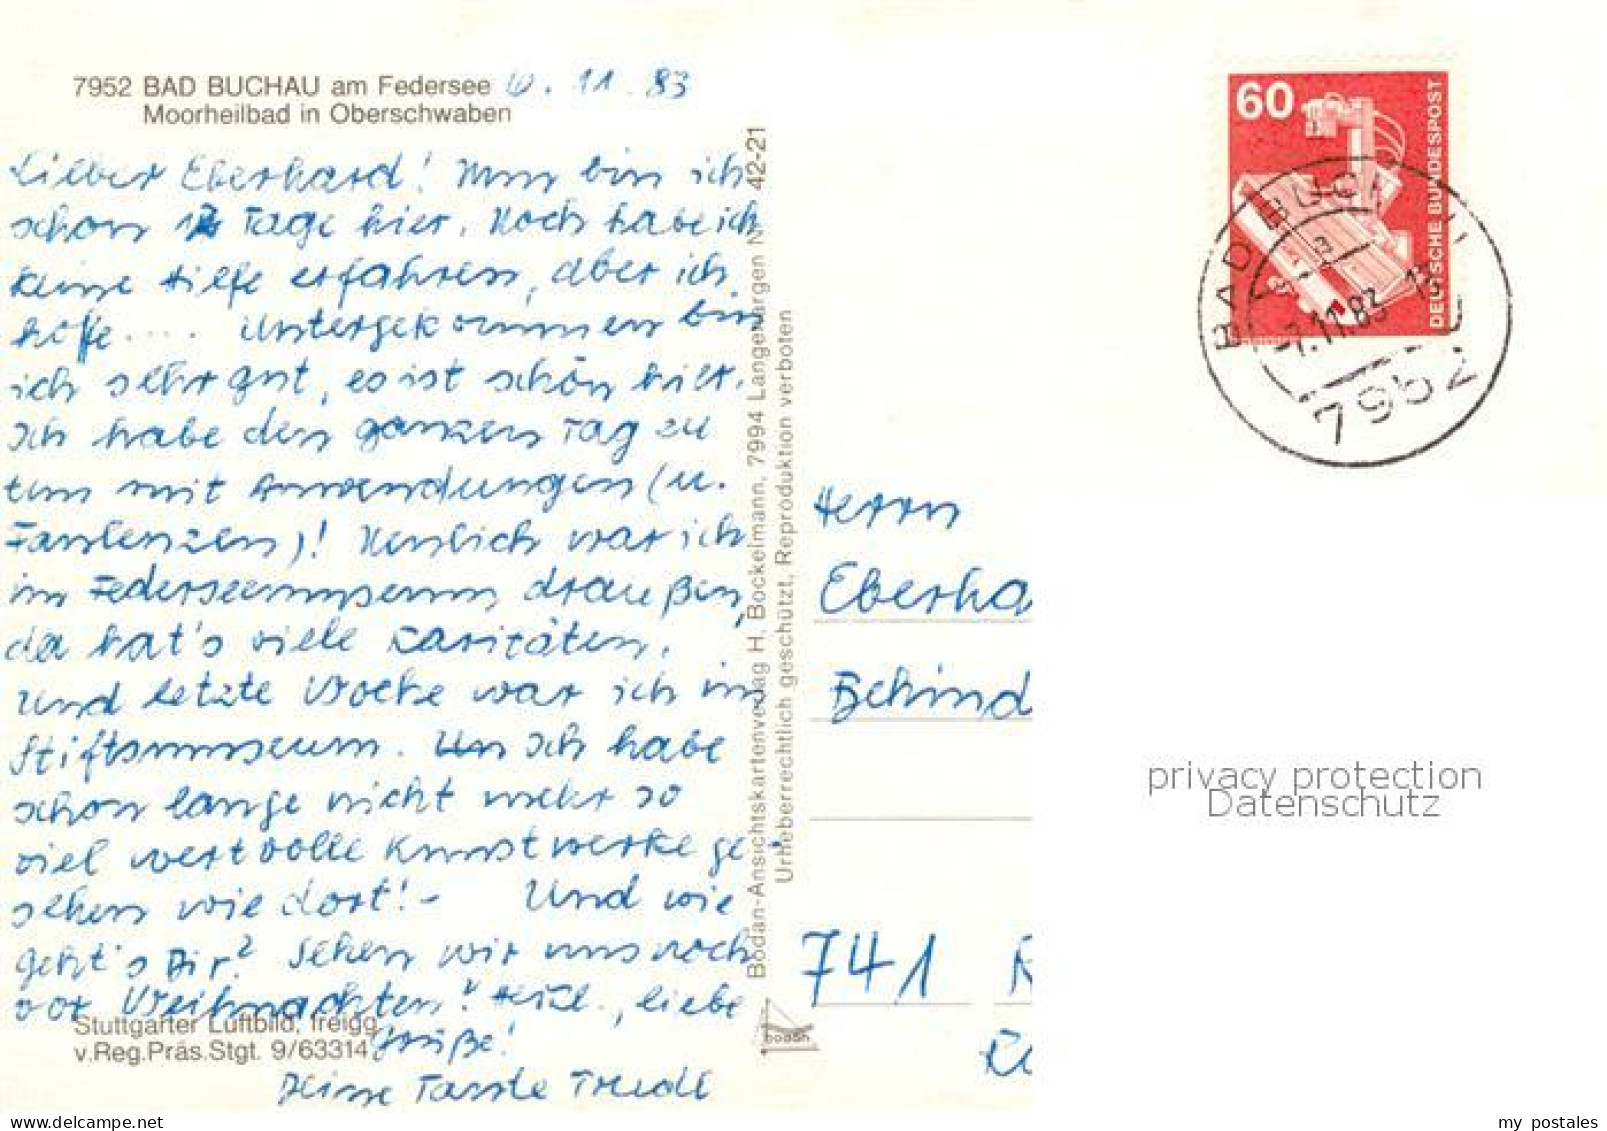 7952 BAD BUCHAU am Federsee 6. 11. 83
Moorheilbad in Oberschwaben
Lieber Eberhard! Nun bin ich
schon Tage hier. Noch habe ich
keine Hilfe erfahren, aber ich
hoffe.... Untergekommen bin
ich sehr gut, es ist schön hier.
Ich habe den ganzen Tag zu
tun mit Anwendungen (u.
Faulenzen)! Neulich war ich
im Federseemuseum draußen,
da hat's viele Raritäten.
Und letzte Woche war ich im
Stiftsmuseum. Un Ich habe
schon lange nicht mehr so
viel wertvolle Kunstwerke ge-
sehen wie dort!- Und wie
geht's Dir? Sehen wir uns noch
vor Weihnachten? Herzl., liebe
Grüße!
Deine Tante Trudl
Stuttgarter Luftbild, freigg.
v.Reg.Präs.Stgt. 9/63314
Bodan-Ansichtskartenverlag H. Bockelmann, 7994 Langenargen Nr. 42-21
Urheberrechtlich geschützt, Reproduktion verboten
bodan
60
DEUTSCHE BUNDESPOST
BAD BUCHAU
-7.11.83
7952
Herrn
Eberha
Behind
741 R
privacy protection
Datenschutz
my postales